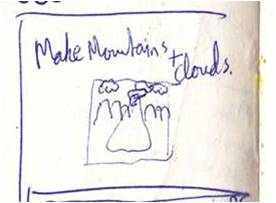 Make Mountains +
clouds.